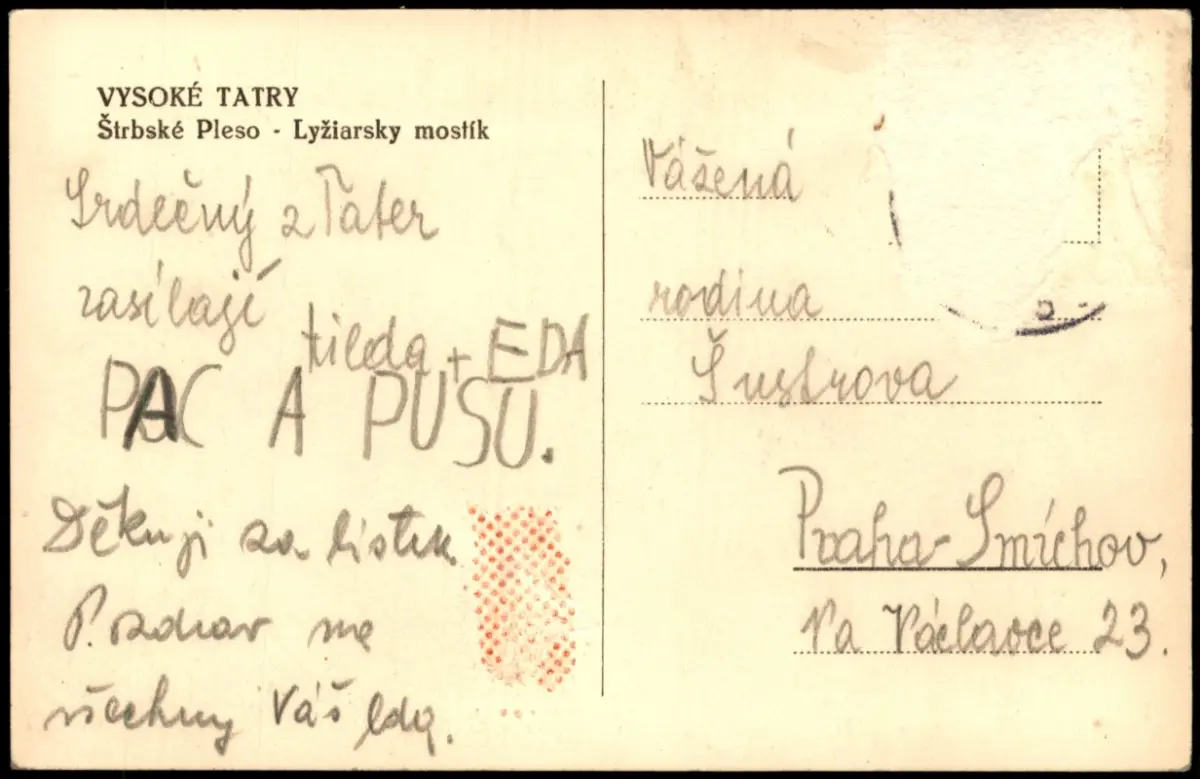 VYSOKÉ TATRY
Štrbské Pleso - Lyžiarsky mostík
Srdečný z Tater
zasílají
tilda + EDA
PAC A PUSU.
Děkuji za lístek
Pozdrav na
všechny Váš Eda.
Vážená
rodina
Šustrova
Praha-Smíchov,
Na Václavce 23.